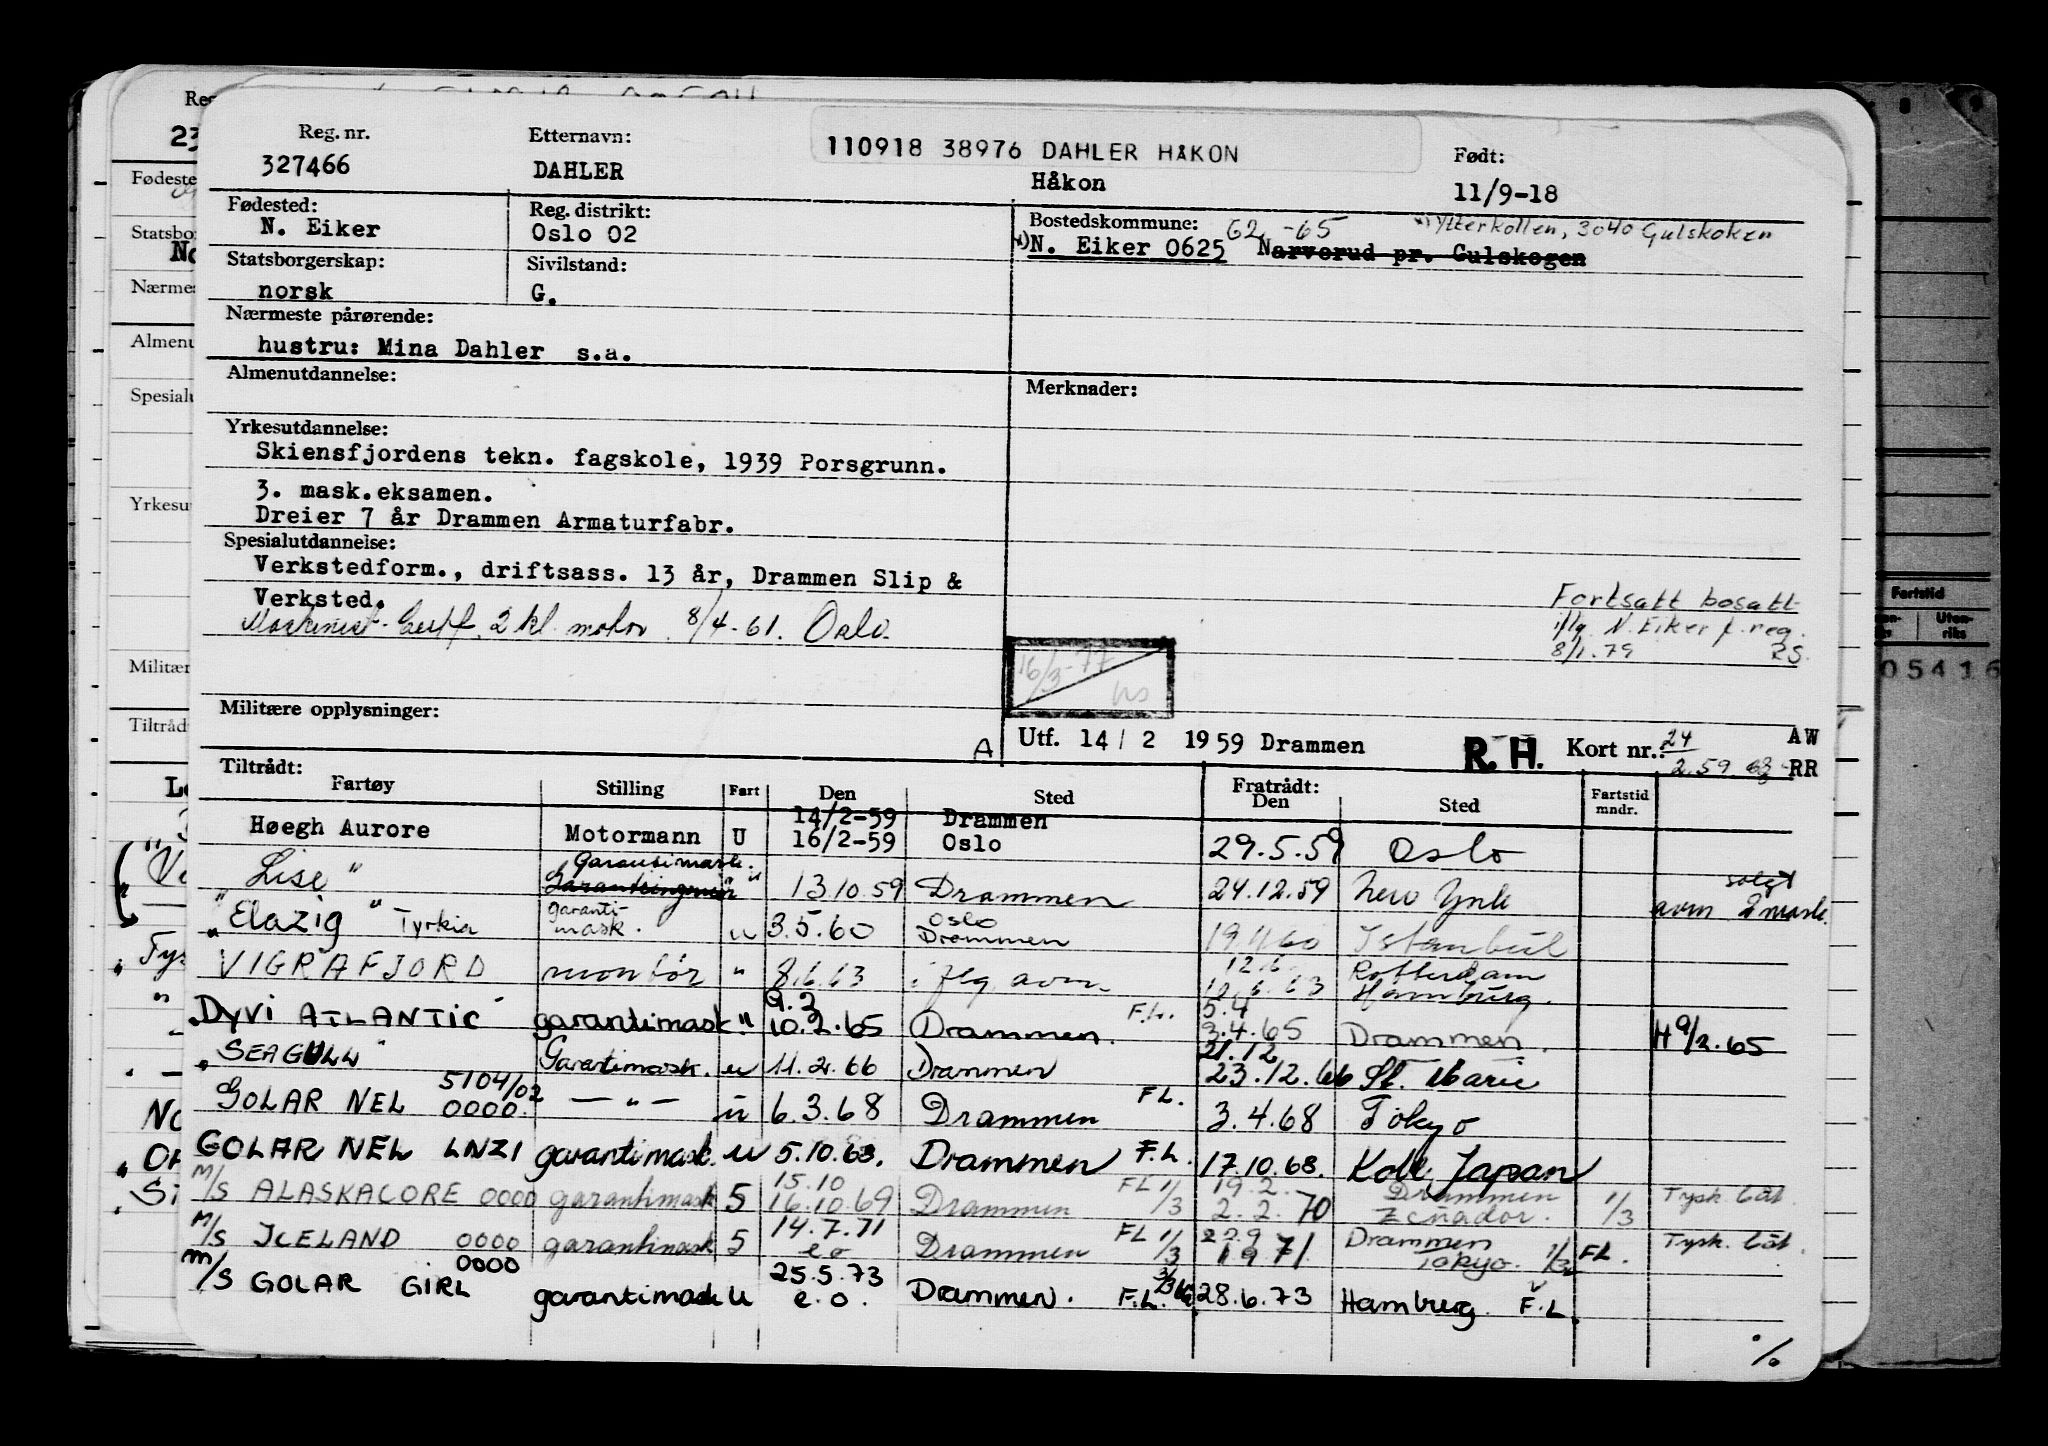 Reg. nr.
Etternavn:
110918 38976 DAHLER HÅKON
Født:
327466
DAHLER
Håkon
11/9-18
Fødested:
Reg. distrikt:
Bostedskommune:
62 -65
Ytterkollen, 3040 Gulskoken
N. Eiker
Oslo 02
N. Eiker 0625
Narverud pr. Gulskogen
Statsborgerskap:
Sivilstand:
norsk
G.
Nærmeste pårørende:
hustru: Mina Dahler s.a.
Almenutdannelse:
Merknader:
Yrkesutdannelse:
Skiensfjordens tekn. fagskole, 1939 Porsgrunn.
3. mask.eksamen.
Dreier 7 år Drammen Armaturfabr.
Spesialutdannelse:
Verkstedform., driftsass. 13 år, Drammen Slip &
Verksted.
Maskinist. Certf. 2 kl. motor 8/4-61. Oslo.
Fortsatt bosatt
iflg. N. Eiker f.reg.
8/1.79 RS.
16/3-77
Militære opplysninger:
A
Utf. 14/2 1959 Drammen
R. H.
Kort nr.: 24
2.59
AW
RR
Tiltrådt:
Fartøy
Stilling
Fart
Den
Sted
Fratrådt:
Den
Sted
Fartstid
mndr.
Høegh Aurore Motormann U 14/2-59 Drammen
16/2-59 Oslo 29.5.59 Oslo
"Lise" Garantimask. " 13.10.59 Drammen 24.12.59 New York solgt
"Elazig" Tyrkia garanti-
mask. u 3.5.60 Oslo
Drammen Istanbul
VIGRAFJORD montør " 8.6.63 iflg. avm. 12.6. Rotterdam
63 Hamburg.
DYVI ATLANTIC garantimask " 9.2
10.2.65 Drammen. F.L. 5.4
3.4.65 Drammen. H 9/2.65
"SEAGULL" Garantimask. u 11.2.66 Drammen 21.12
23.12.66 St. Marie
GOLAR NEL 5104/02
0000. — " — u 6.3.68 Drammen FL. 3.4.68 Tokyo
GOLAR NEL LNZI garantimask. u 5.10.68. Drammen F.L. 17.10.68. Kobe, Japan
M/S ALASKACORE 0000 garantimask 5 15.10
16.10.69 Drammen FL 1/3 19.2.
2.2.70 Drammen
Ecuador. 1/3 Tysk båt.
M/S ICELAND 0000 garantimask 5 14.7.71
e o Drammen FL 1/3 22.9
19 71 Drammen
Tokyo. 1/3 FL. Tysk. båt.
M/S GOLAR GIRL 0000 garantimask u 25.5.73
e. o. Drammen. F.L. 28.6.73 Hamburg. F.L.
%
Fødeste
Statsbo
Nærmes
Almenu
Spesialu
Yrkesut
Militær
Tiltråd
Fartstid
Uten-
riks
05416